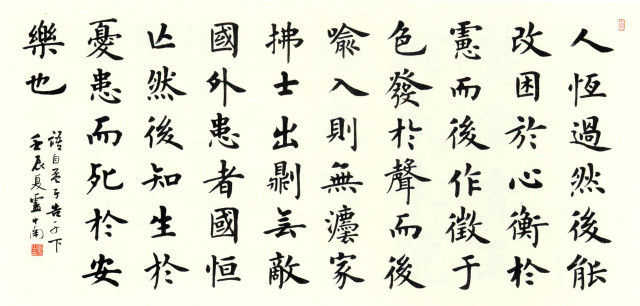 人恆過然後能
改困於心衡於
慮而後作徵于
色發於聲而後
喻入則無灋家
拂士出則無敵
國外患者國恒
亡然後知生於
憂患而死於安
樂也
語自孟子告子下
壬辰夏盧中南